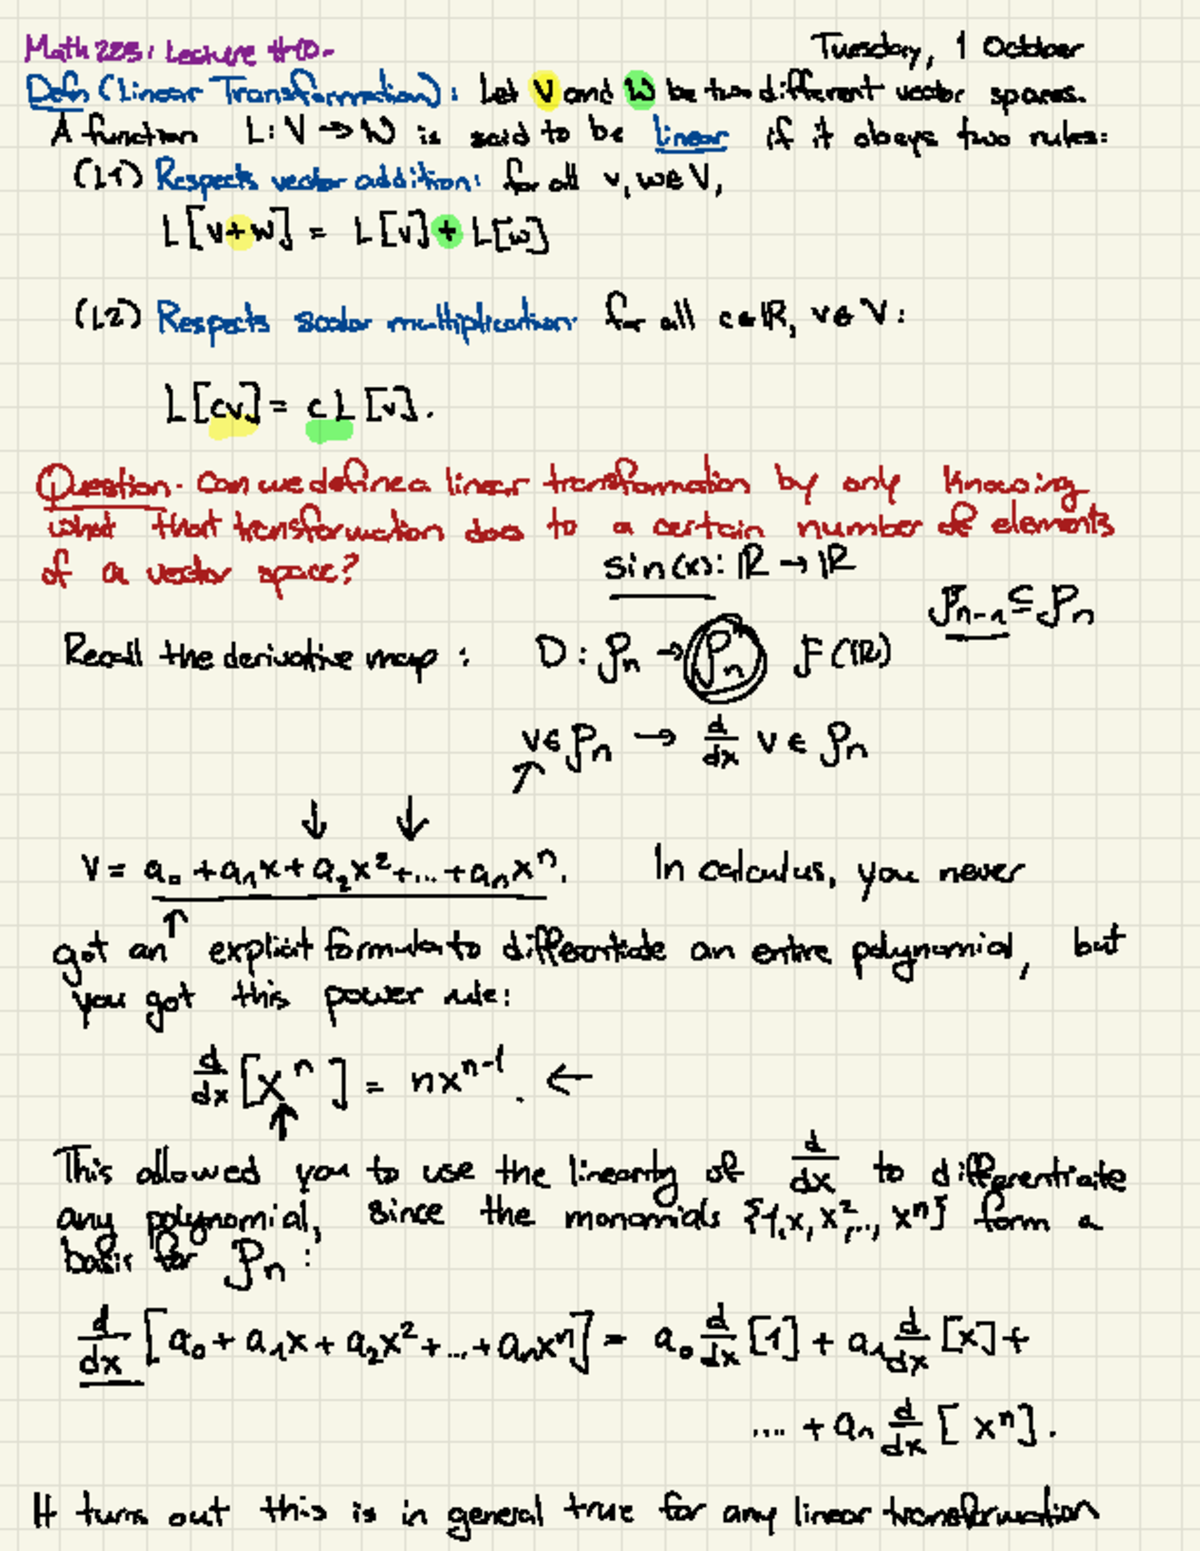 Math 223: Lecture #10-
Tuesday, 1 October
Defn (Linear Transformation): Let V and W be two different vector spaces.
A function L: V → W is said to be linear if it obeys two rules:
(L1) Respects vector addition: for all v, w ∈ V,
L[v+w] = L[v] + L[w]
(L2) Respects scalar multiplication for all c ∈ ℝ, v ∈ V:
L[cv] = c L [v].
Question. Can we define a linear transformation by only knowing
what that transformation does to a certain number of elements
of a vector space?
sin(x): ℝ → ℝ
𝒫n-1 ⊆ 𝒫n
Recall the derivative map: D: 𝒫n → 𝒫n F(ℝ)
v ∈ 𝒫n → d/dx v ∈ 𝒫n
↑
↓ ↓
V = a₀ + a₁x + a₂x² + ... + aₙxⁿ. In calculus, you never
↑
got an explicit formula to differentiate an entire polynomial, but
you got this power rule:
d/dx [xⁿ] = nxⁿ⁻¹. ←
↑
This allowed you to use the linearity of d/dx to differentiate
any polynomial, since the monomials {1, x, x², ..., xⁿ} form a
basis for 𝒫n:
d/dx [a₀ + a₁x + a₂x² + ... + aₙxⁿ] = a₀ d/dx [1] + a₁ d/dx [x] +
.... + aₙ d/dx [xⁿ].
It turns out this is in general true for any linear transformation